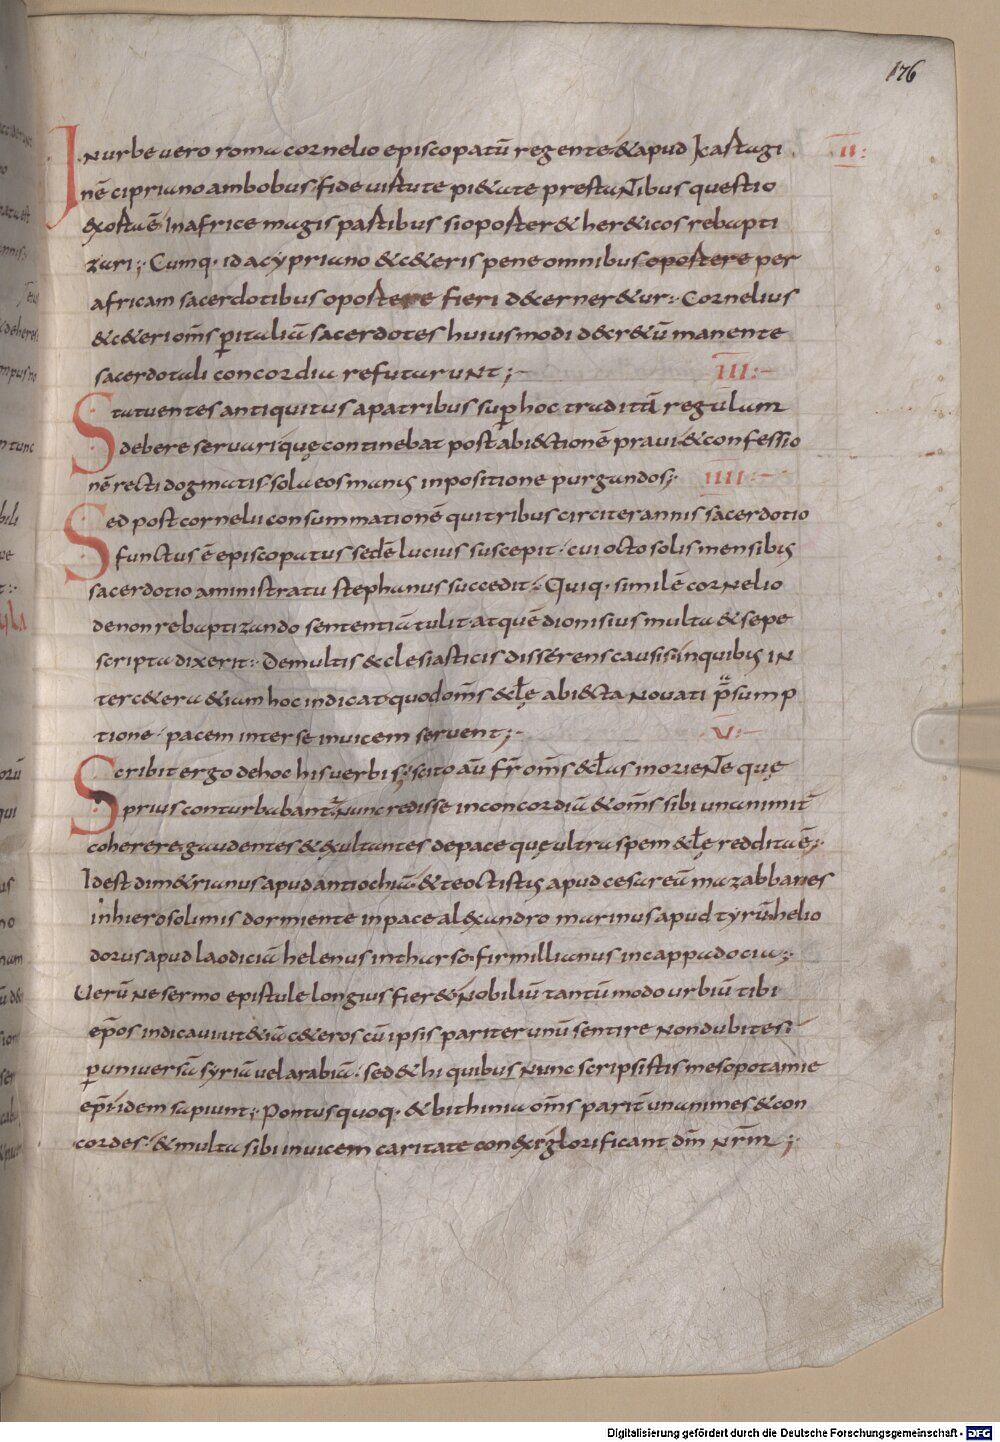 176
IN urbe uero roma cornelio episcopatū regente & apud kartagi II:
nē cipriano ambobus fide uirtute pi&ate prestantibus questio
exorta ē in africe magis partibus si oporter& her&icos rebapti
zari; Cumq· id a cypriano & c&eris pene omnibus oportere per
africam sacerdotibus oportere fieri d&cerner&ur: Cornelius
& c&eri om̄s p italiā sacerdotes huiusmodi decr&ū manente
sacerdotali concordia refutarunt; III:
Statuentes antiquitus a patribus sup hoc traditā regulam
debere seruari quę continebat post abi&ctionē praui & confessio
nē recti dogmatis sola eos manus inpositione purgandos; IIII:
Sed post cornelii consummationē qui tribus circiter annis sacerdotio
functus ē episcopatus sedē lucius suscepit cui octo solis mensibus
sacerdotio aministratu stephanus succedit: Quiq· similē cornelio
de non rebaptizando sententiā tulit atquē dionisius multa & sepe
scripta dixerit: De multis &clesiasticis disserens causis in quibus in
ter c&era &iam hoc indicat quod om̄s &cłę abi&cta nouati p̄sump
tione pacem inter se inuicem seruent; V:
Scribit ergo de hoc his uerbis; scito aū fr̄ om̄s &cłas in oriente quę
prius conturbabant nunc redisse in concordiā & om̄s sibi unanimit̄
coherere gaudentes & exultantes de pace quę ultra spem &cłę reddita ē;
Id est dim&rianus apud antiochiā & teoctistus apud cesareā mazabbanes
in hierosolimis dormiente in pace alexandro marinus apud tyrū helio
dorus apud laodiciā helenus in tharso firmillianus in cappadocia;
Uerū ne sermo epistule longius fier& nobiliū tantū modo urbiū tibi
ep̄os indicaui ut &iā c&eros cū ipsis pariter unū sentire non dubites:
p uniuersā syriā uel arabiā sed & hi quibus nunc scripsistis mesopotamie
ep̄i idem sapiunt; Pontus quoq· & bithinia om̄s parit̄ unanimes & con
cordes & multa sibi inuicem caritate conexi glorificant dm̄ nr̄m;
Digitalisierung gefördert durch die Deutsche Forschungsgemeinschaft - DFG